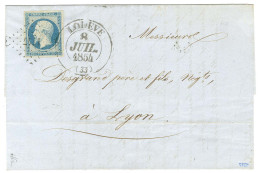 LODÈVE
8
JUIL.
1854
(33)
Messieurs
Desgrand père et fils, Negts.
à Lyon.